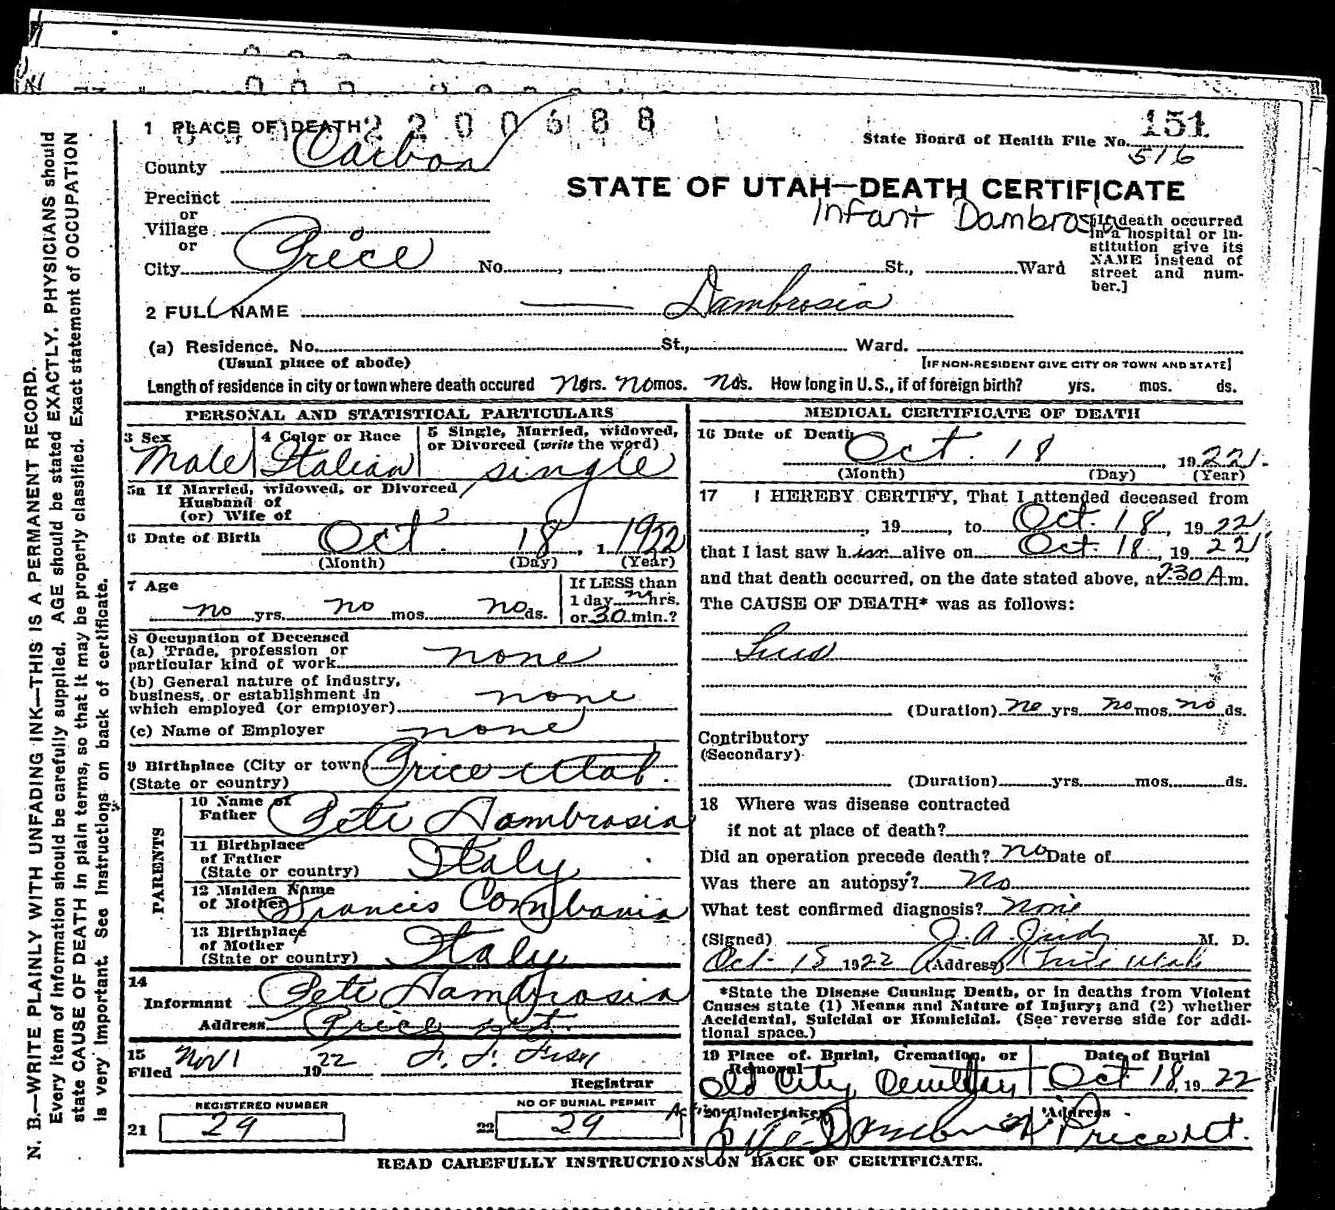 1 PLACE OF DEATH 2200688
State Board of Health File No. 151
516
County Carbon
STATE OF UTAH—DEATH CERTIFICATE
Precinct
or
Village
or
City Price No. , St., Ward
Infant Dambrosia
[If death occurred
in a hospital or in-
stitution give its
NAME instead of
street and num-
ber.]
2 FULL NAME Dambrosia
(a) Residence. No. St., Ward.
(Usual place of abode) [IF NON-RESIDENT GIVE CITY OR TOWN AND STATE]
Length of residence in city or town where death occured no yrs. no mos. no ds. How long in U.S., if of foreign birth? yrs. mos. ds.
PERSONAL AND STATISTICAL PARTICULARS
3 Sex 4 Color or Race 5 Single, Married, widowed,
or Divorced (write the word)
Male Italian single
5a If Married, widowed, or Divorced
Husband of
(or) Wife of
6 Date of Birth Oct. 18, 1922
(Month) (Day) (Year)
7 Age If LESS than
no yrs. no mos. no ds. 1 day no hrs.
or 30 min.?
8 Occupation of Deceased
(a) Trade, profession or
particular kind of work none
(b) General nature of industry,
business, or establishment in
which employed (or employer) none
(c) Name of Employer none
9 Birthplace (City or town) Price Utah.
(State or country)
PARENTS
10 Name of
Father Pete Dambrosia
11 Birthplace
of Father
(State or country) Italy
12 Maiden Name
of Mother Francis Combania
13 Birthplace
of Mother
(State or country) Italy
14
Informant Pete Dambrosia
Address Price Ut.
15
Filed Nov 1 1922
Registrar
REGISTERED NUMBER NO OF BURIAL PERMIT
21 29 22 29
MEDICAL CERTIFICATE OF DEATH
16 Date of Death Oct. 18, 1922.
(Month) (Day) (Year)
17 I HEREBY CERTIFY, That I attended deceased from
, 19 , to Oct. 18, 1922
that I last saw him alive on Oct. 18, 1922
and that death occurred, on the date stated above, at 2:30 A.m.
The CAUSE OF DEATH* was as follows:
Lues
(Duration) no yrs no mos no ds.
Contributory
(Secondary)
(Duration) yrs. mos. ds.
18 Where was disease contracted
if not at place of death?
Did an operation precede death? no Date of
Was there an autopsy? No
What test confirmed diagnosis? None
(Signed) J. A. Judy M. D.
Oct. 18 1922 (Address) Price Utah
*State the Disease Causing Death, or in deaths from Violent
Causes state (1) Means and Nature of Injury; and (2) whether
Accidental, Suicidal or Homicidal. (See reverse side for addi-
tional space.)
19 Place of Burial, Cremation, or
Removal Date of Burial
Old City Oct. 18, 1922
20 Undertaker Address
Price Ut.
READ CAREFULLY INSTRUCTIONS ON BACK OF CERTIFICATE.
N. B.—WRITE PLAINLY WITH UNFADING INK—THIS IS A PERMANENT RECORD.
Every item of information should be carefully supplied. AGE should be stated EXACTLY. PHYSICIANS should
state CAUSE OF DEATH in plain terms, so that it may be properly classified. Exact statement of OCCUPATION
is very important. See instructions on back of certificate.